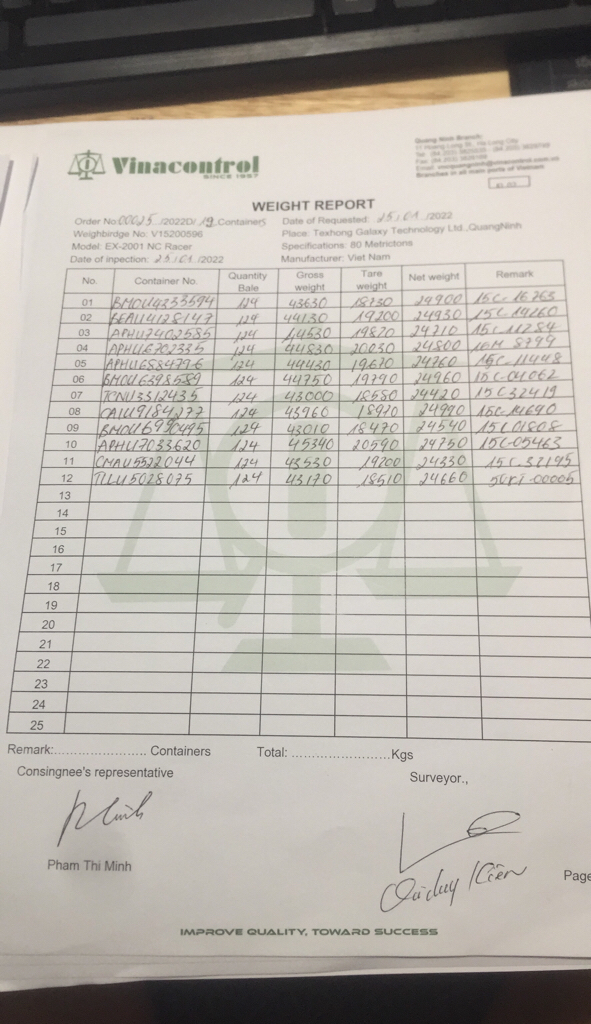 Vinacontrol
SINCE 1957
Quang Ninh Branch:
Branches in all main ports of Vietnam
WEIGHT REPORT
Order No:00025 /2022D/ 19 Containers Date of Requested: 25/01/2022
Weighbirdge No: V15200596 Place: Texhong Galaxy Technology Ltd.,QuangNinh
Model: EX-2001 NC Racer Specifications: 80 Metrictons
Date of inpection: 25/01/2022 Manufacturer: Viet Nam
No. Container No. Quantity Bale Gross weight Tare weight Net weight Remark
01 BMOU4333594 124 43630 18730 24900 15C-16763
02 124 44130 19200 24930 15C-14260
03 APHU7402585 124 44530 19820 24710 15C-11284
04 APHU6702335 124 44830 20030 24800 16M 8799
05 APHU6884796 124 19670 24760 15C-11448
06 BMOU6398589 124 44750 19790 24960 15C-04062
07 TCNU3312435 124 43000 18580 24420 15C32419
08 CAIU9184277 124 43960 18970 24990 15C-14690
09 124 43010 18470 24540 15C01808
10 APHU7033620 124 45340 20590 24750 15C-05463
11 CMAU5522044 124 43530 19200 24330 15C-32195
12 TLLU5028075 124 43170 18510 24660
13
14
15
16
17
18
19
20
21
22
23
24
25
Remark:........................ Containers Total: .........................Kgs
Consingnee's representative Surveyor.,
Pham Thi Minh
Page
IMPROVE QUALITY, TOWARD SUCCESS